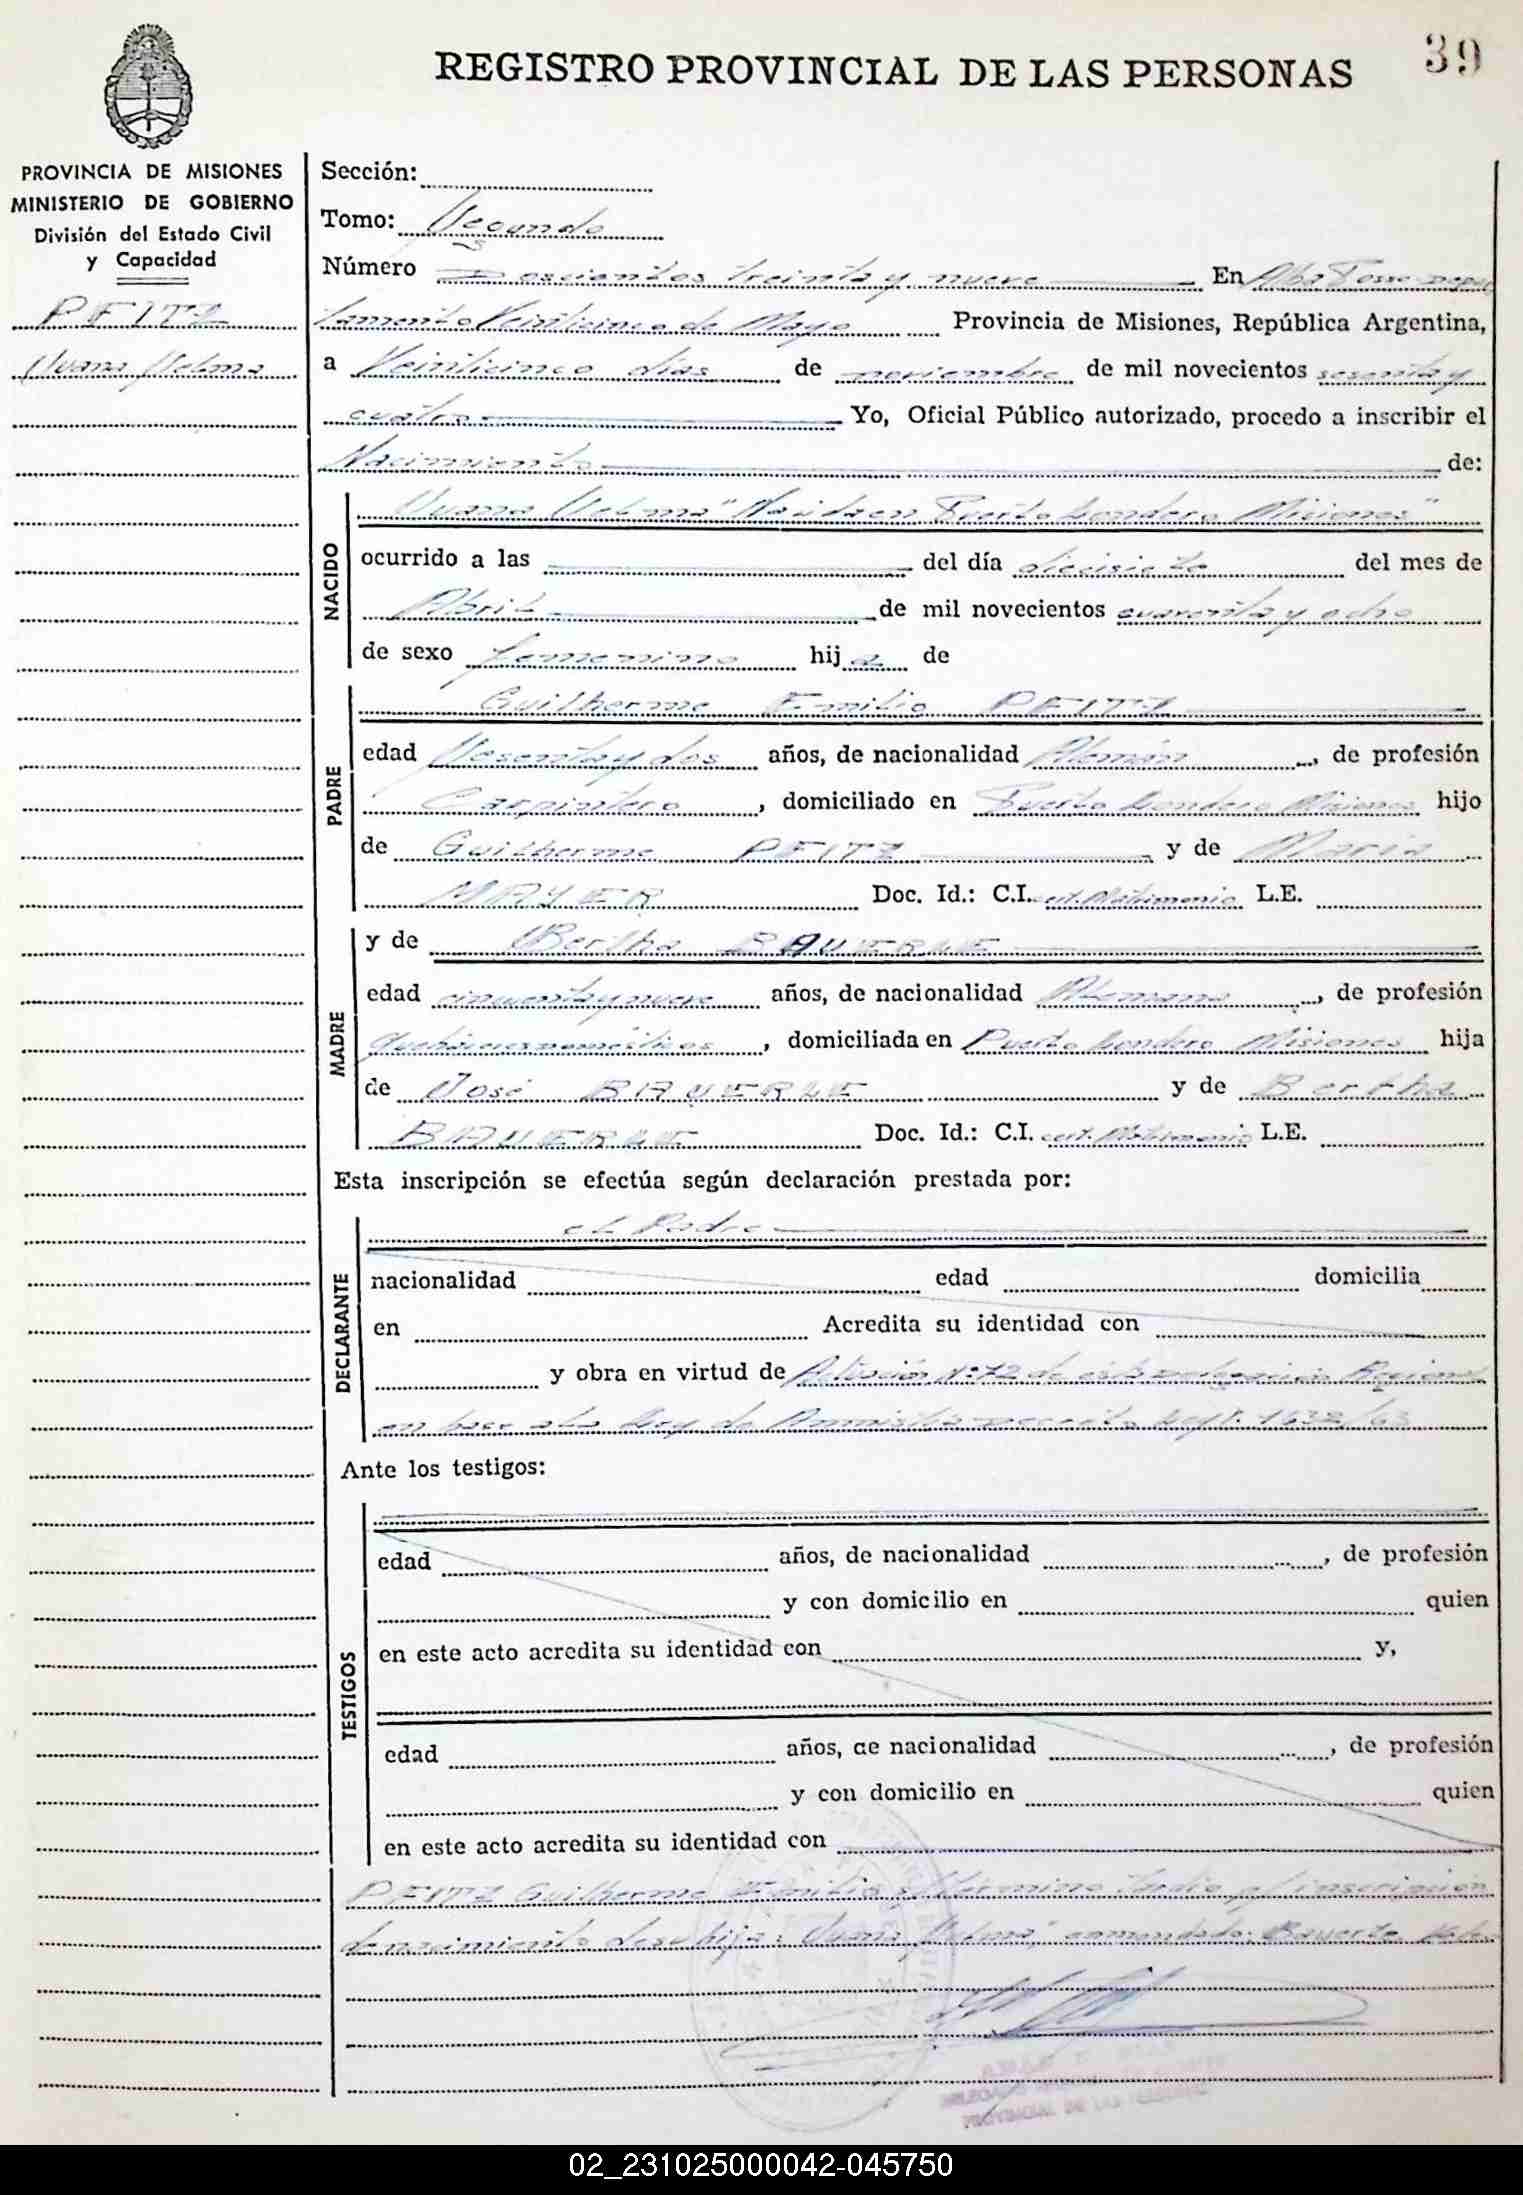 39
REGISTRO PROVINCIAL DE LAS PERSONAS
PROVINCIA DE MISIONES
MINISTERIO DE GOBIERNO
División del Estado Civil
y Capacidad
PEITZ
Juana Selma
Sección:
Tomo: Segundo
Número Doscientos treinta y nueve En Alba Posse Depar
tamento Veinticinco de Mayo Provincia de Misiones, República Argentina,
a Veinticinco días de noviembre de mil novecientos sesenta y
cuatro Yo, Oficial Público autorizado, procedo a inscribir el
Nacimiento de:
NACIDO
Juana Selma "Nacida en Puerto Londero Misiones"
ocurrido a las del día diecisiete del mes de
Abril de mil novecientos cuarenta y ocho
de sexo femenino hija de
PADRE
Guilherme Emilio PEITZ
edad Sesenta y dos años, de nacionalidad Alemán, de profesión
Carpintero, domiciliado en Puerto Londero Misiones hijo
de Guilherme PEITZ y de María
MAYER Doc. Id.: C.I. cert. Matrimonio L.E.
MADRE
y de Bertha BAUERLE
edad cincuenta y nueve años, de nacionalidad Alemana, de profesión
Quehaceres domésticos, domiciliada en Puerto Londero Misiones hija
de José BAUERLE y de Bertha
BAUERLE Doc. Id.: C.I. cert. Matrimonio L.E.
Esta inscripción se efectúa según declaración prestada por:
DECLARANTE
el Padre
nacionalidad edad domicilia
en Acredita su identidad con
y obra en virtud de Actuación Nº 72 de esta Delegación Regional
en base a la Ley de Amnistía Decreto Ley 1632/63
Ante los testigos:
TESTIGOS
edad años, de nacionalidad , de profesión
y con domicilio en quien
en este acto acredita su identidad con y,
edad años, de nacionalidad , de profesión
y con domicilio en quien
en este acto acredita su identidad con
PEITZ Guilherme Emilio s/término tardío p/inscripción
de nacimiento de su hija: Juana Selma, enmendado: Bauerle Vale.
PROVINCIAL DE LAS PERSONAS
02_231025000042-045750